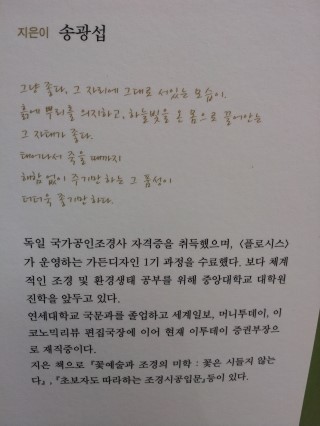 지은이 송광섭
그냥 좋다, 그 자리에 그대로 서있는 모습이.
흙에 뿌리를 의지하고, 하늘빛을 온 몸으로 끌어안는
그 자태가 좋다.
태어나서 죽을 때까지
해함 없이 주기만 하는 그 품성이
더더욱 좋기만 하다.
독일 국가공인조경사 자격증을 취득했으며, 〈플로시스〉
가 운영하는 가든디자인 1기 과정을 수료했다. 보다 체계
적인 조경 및 환경생태 공부를 위해 중앙대학교 대학원
진학을 앞두고 있다.
연세대학교 국문과를 졸업하고 세계일보, 머니투데이, 이
코노믹리뷰 편집국장에 이어 현재 이투데이 증권부장으
로 재직중이다.
지은 책으로 『꽃예술과 조경의 미학 : 꽃은 시들지 않는
다』, 『초보자도 따라하는 조경시공입문』등이 있다.